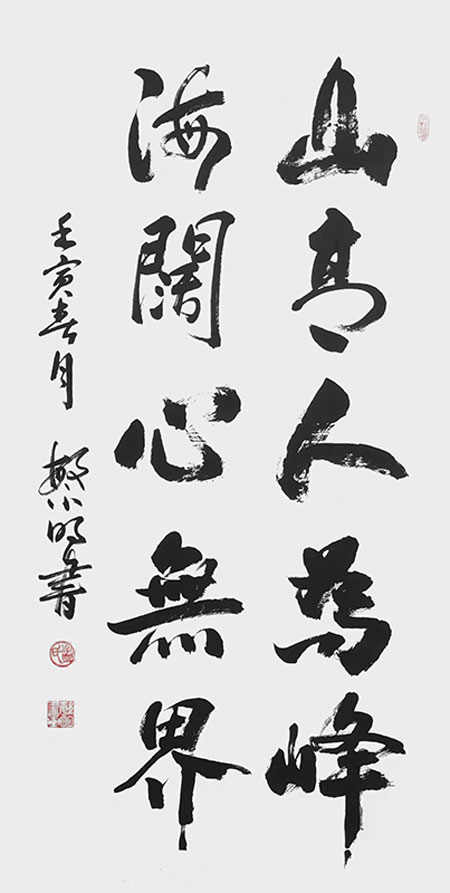 山高人為峰
海闊心無界
壬寅春月
小明書